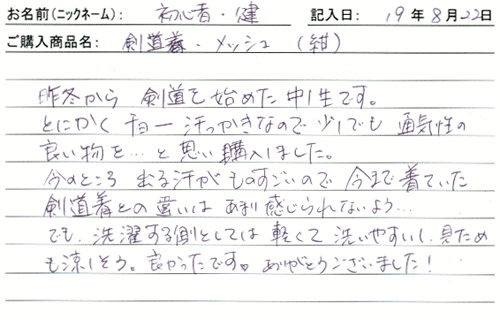 お名前(ニックネーム): 初心者・健 記入日: 19年8月22日
ご購入商品名: 剣道着・メッシュ (紺)
昨冬から 剣道を始めた中1生です。
とにかく チョー汗っかきなので 少しでも 通気性の
良い物を… と思い購入しました。
今のところ 出る汗が ものすごいので 今まで着ていた
剣道着との違いは あまり感じられないよう…
でも、洗濯する側としては 軽くて 洗いやすいし、見ため
も涼しそう。良かったです。ありがとうございました!